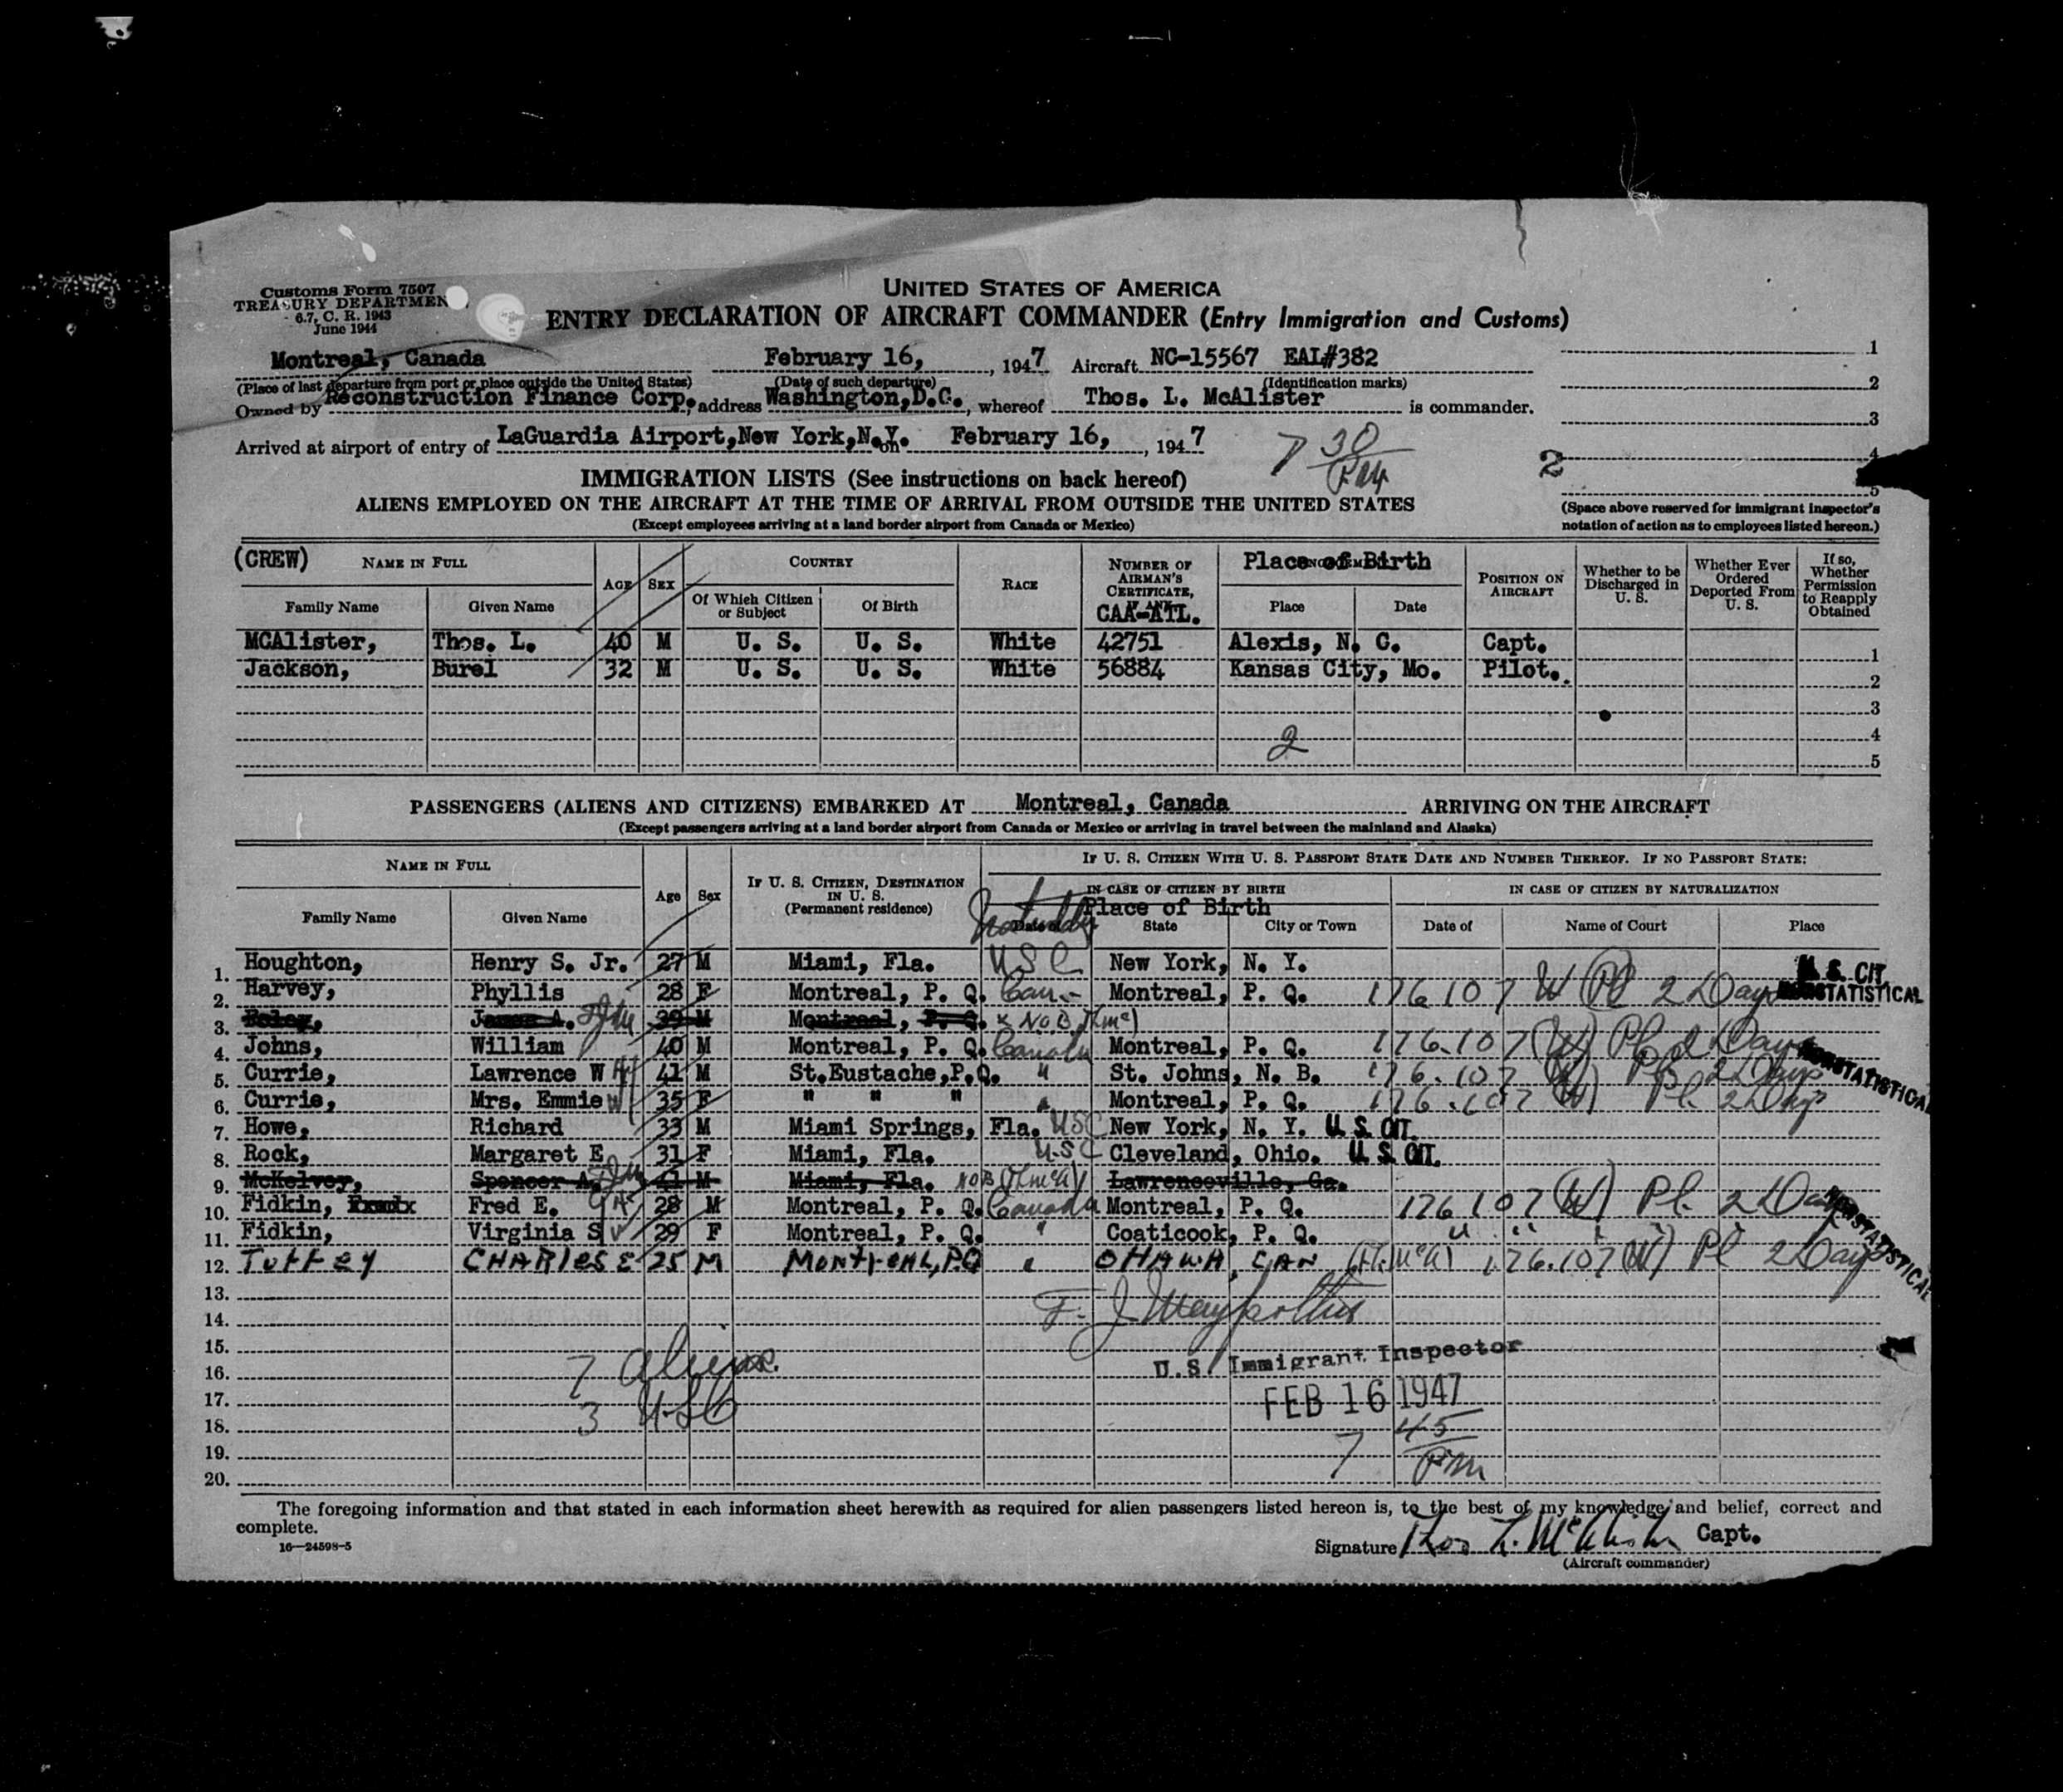 Customs Form 7507
TREASURY DEPARTMENT
6.7, C. R. 1943
June 1944
UNITED STATES OF AMERICA
ENTRY DECLARATION OF AIRCRAFT COMMANDER (Entry Immigration and Customs)
Montreal, Canada February 16, 1947 Aircraft NC-15567 EAL#382 1
(Place of last departure from port or place outside the United States) (Date of such departure) (Identification marks) 2
Owned by Reconstruction Finance Corp. address Washington,D.C., whereof Thos. L. McAlister is commander. 3
Arrived at airport of entry of LaGuardia Airport,New York,N.Y. on February 16, 1947 7 30 PM 2 4
5
IMMIGRATION LISTS (See instructions on back hereof)
ALIENS EMPLOYED ON THE AIRCRAFT AT THE TIME OF ARRIVAL FROM OUTSIDE THE UNITED STATES
(Space above reserved for immigrant inspector's notation of action as to employees listed hereon.)
(Except employees arriving at a land border airport from Canada or Mexico)
(CREW) NAME IN FULL AGE SEX COUNTRY RACE NUMBER OF AIRMAN'S CERTIFICATE, CAA-ATL. Place of Birth POSITION ON AIRCRAFT Whether to be Discharged in U. S. Whether Ever Ordered Deported From U. S. If so, Whether Permission to Reapply Obtained
Family Name Given Name Of Which Citizen or Subject Of Birth Place Date
MCAlister, Thos. L. 40 M U. S. U. S. White 42751 Alexis, N. C. Capt. 1
Jackson, Burel 32 M U. S. U. S. White 56884 Kansas City, Mo. Pilot. 2
3
2 4
5
PASSENGERS (ALIENS AND CITIZENS) EMBARKED AT Montreal, Canada ARRIVING ON THE AIRCRAFT
(Except passengers arriving at a land border airport from Canada or Mexico or arriving in travel between the mainland and Alaska)
NAME IN FULL Age Sex IF U. S. CITIZEN, DESTINATION IN U. S. (Permanent residence) IF U. S. CITIZEN WITH U. S. PASSPORT STATE DATE AND NUMBER THEREOF. IF NO PASSPORT STATE:
IN CASE OF CITIZEN BY BIRTH IN CASE OF CITIZEN BY NATURALIZATION
Place of Birth
Family Name Given Name State City or Town Date of Name of Court Place
1. Houghton, Henry S. Jr. 27 M Miami, Fla. USC New York, N. Y. U. S. CIT.
2. Harvey, Phyllis 28 F Montreal, P. Q. Can. Montreal, P. Q. 176.107 W Pl 2 Days NONSTATISTICAL
3. James A. 39 M Montreal, P. Q. NOB
4. Johns, William 40 M Montreal, P. Q. Canada Montreal, P. Q. 176.107 (W) Pl 2 Days NONSTATISTICAL
5. Currie, Lawrence W 41 M St.Eustache,P.Q. " St. Johns, N. B. 176.107 (W) Pl 2 Days
6. Currie, Mrs. Emmie 35 F " " " " Montreal, P. Q. 176.107 (W) Pl 2 Days
7. Howe, Richard 33 M Miami Springs, Fla. USC New York, N. Y. U. S. CIT.
8. Rock, Margaret E 31 F Miami, Fla. U.S.C Cleveland, Ohio. U. S. CIT.
9. McKelvey, Spencer A. 41 M Miami, Fla. NOB Lawrenceville, Ga.
10. Fidkin, Fred E. 28 M Montreal, P. Q. Canada Montreal, P. Q. 176.107 (W) Pl. 2 Days NONSTATISTICAL
11. Fidkin, Virginia S 29 F Montreal, P. Q. " Coaticook, P. Q. " " " "
12. Tuffey CHARLES E 25 M MONTREAL, P.Q " OTTAWA, CAN 176.107 (W) Pl 2 Days
13.
14.
15.
16. 7 aliens. U.S. Immigrant Inspector
17. FEB 16 1947
18. 3 USC 7 45 PM
19.
20.
The foregoing information and that stated in each information sheet herewith as required for alien passengers listed hereon is, to the best of my knowledge and belief, correct and
complete.
16—24598-5
Signature Thos L. McAlister Capt.
(Aircraft commander)